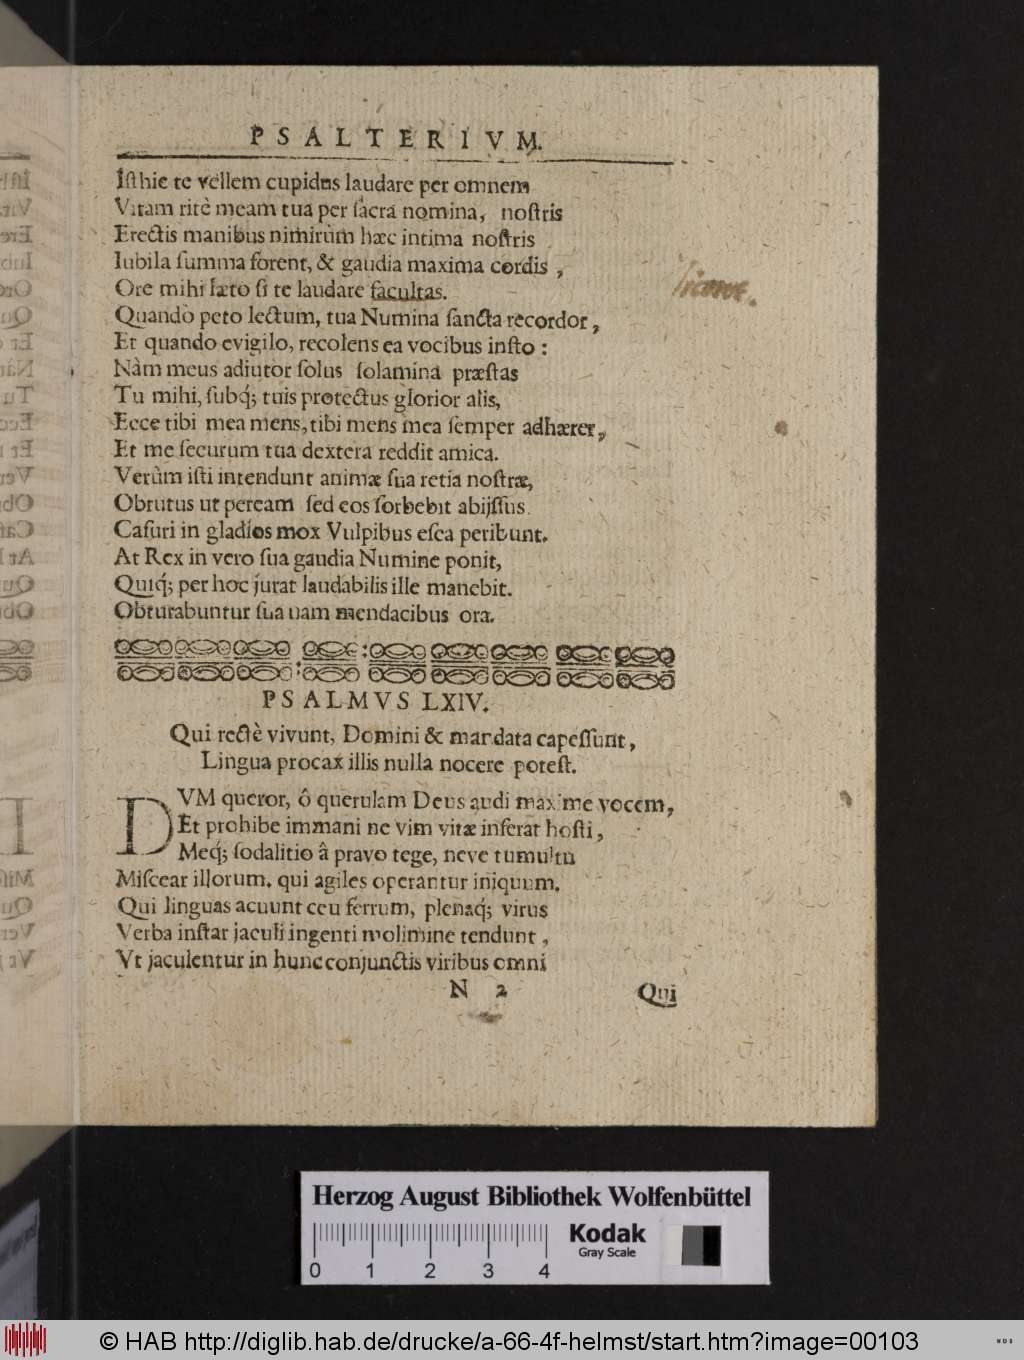 PSALTERIVM.
Iſthic te vellem cupidus laudare per omnem
Vitam ritè meam tua per ſacra nomina, noſtris
Erectis manibus nimirùm hæc intima noſtris
Iubila ſumma forent, & gaudia maxima cordis,
Ore mihi læto ſi te laudare facultas.
Quando peto lectum, tua Numina ſancta recordor,
Et quando evigilo, recolens ea vocibus inſto:
Nàm meus adiutor ſolus ſolamina præſtas
Tu mihi, ſubq́; tuis protectus glorior alis,
Ecce tibi mea mens, tibi mens mea ſemper adhæret,
Et me ſecurum tua dextera reddit amica.
Verùm iſti intendunt animæ ſua retia noſtræ,
Obrutus ut peream ſed eos ſorbebit abijſſus.
Caſuri in gladios mox Vulpibus eſca peribunt.
At Rex in vero ſua gaudia Numine ponit,
Quiq́; per hoc jurat laudabilis ille manebit.
Obturabuntur ſua nam mendacibus ora.
PSALMVS LXIV.
Qui rectè vivunt, Domini & mandata capeſſunt,
Lingua procax illis nulla nocere poteſt.
DVM queror, ô querulam Deus audi maxime vocem,
Et prohibe immani ne vim vitæ inferat hoſti,
Meq́; ſodalitio â pravo tege, neve tumultu
Miſcear illorum, qui agiles operantur iniquum.
Qui linguas acuunt ceu ferrum, plenaq́; virus
Verba inſtar jaculi ingenti molimine tendunt,
Vt jaculentur in hunc conjunctis viribus omni
N 2 Qui
Herzog August Bibliothek Wolfenbüttel
Kodak
Gray Scale
0 1 2 3 4
© HAB http://diglib.hab.de/drucke/a-66-4f-helmst/start.htm?image=00103